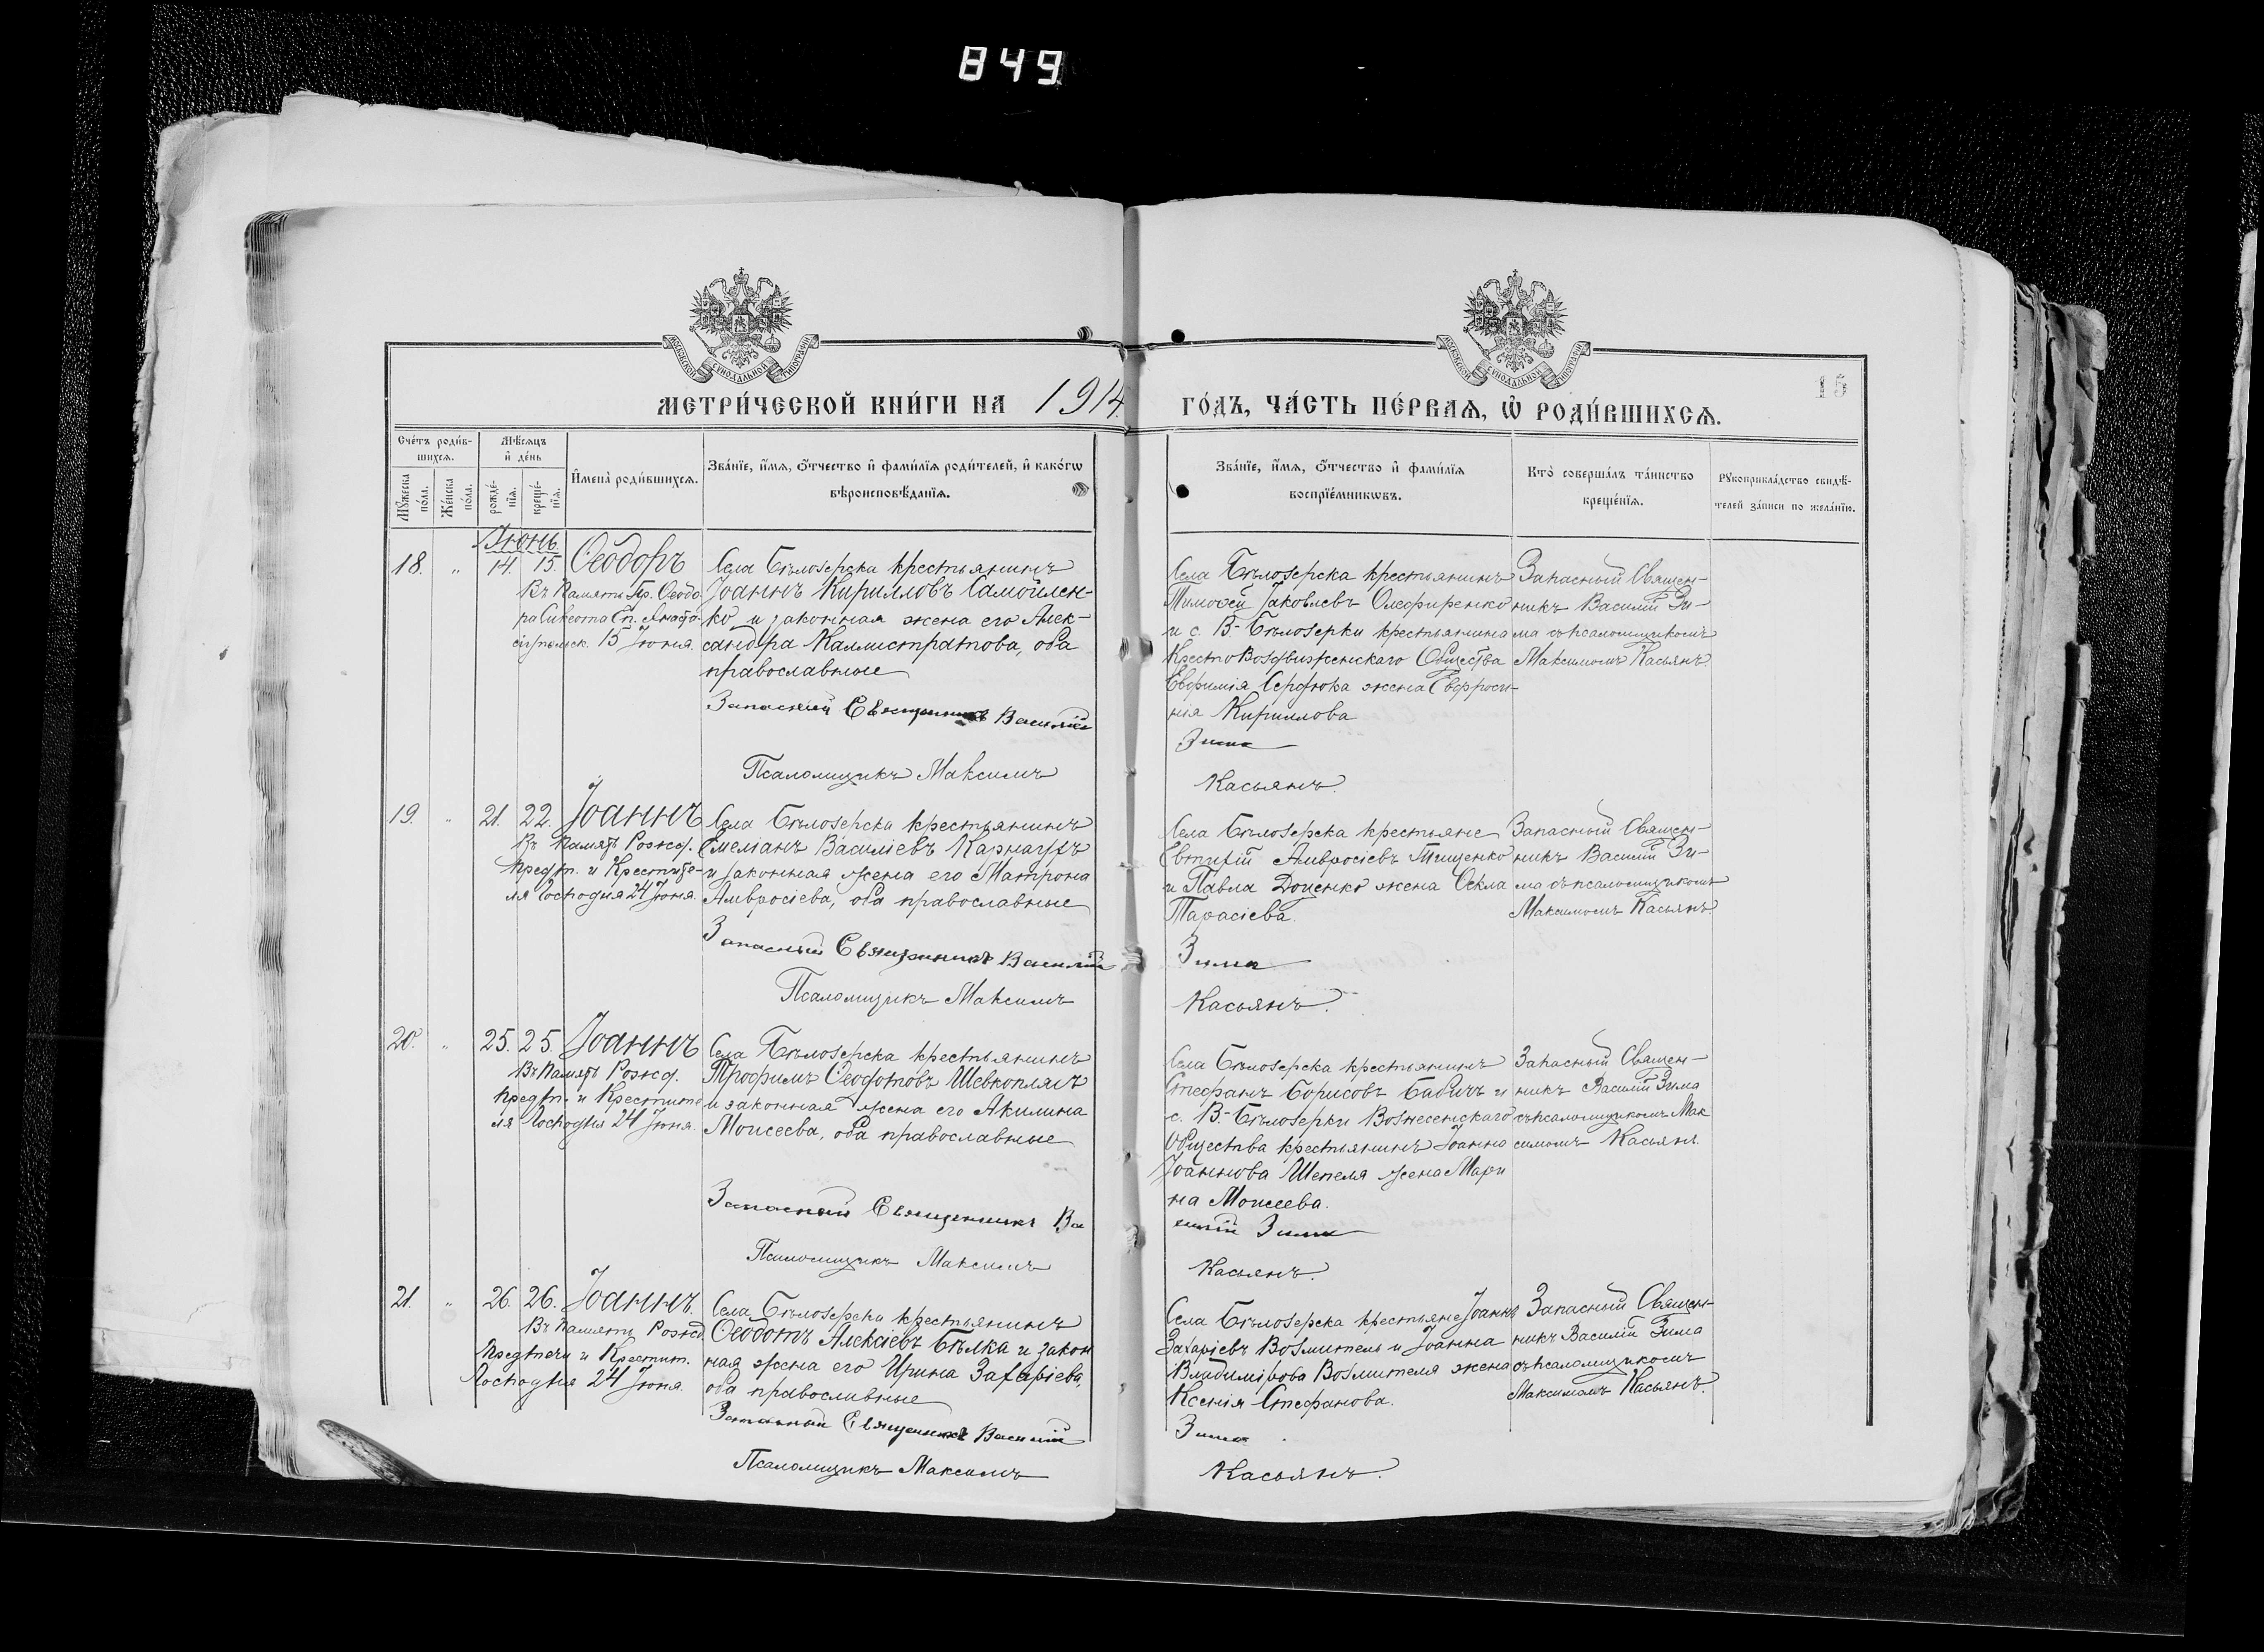 849
МОСКОВСКОЙ СѴНОДАЛЬНОЙ ТИПОГРАФІИ
МОСКОВСКОЙ СѴНОДАЛЬНОЙ ТИПОГРАФІИ
МЕТРИ́ЧЕСКОЙ КНИ́ГИ НА 1914
ГО́ДЪ, ЧА́СТЬ ПЕ́РВАѦ, Ѡ҆ РОДИ́ВШИХСѦ.
15
Сче́тъ роди́в-
шихсѧ.
Мꙋ́жеска
по́ла.
Же́нска
по́ла.
Мѣ́сѧцъ
и҆ де́нь
рожде́-
нїѧ.
креще́-
нїѧ.
И҆мена̀ роди́вшихсѧ.
Зва́нїе, и҆́мѧ, ѻ҆́тчество и҆ фами́лїѧ роди́телей, и҆ како́гѡ
вѣроисповѣ́данїѧ.
Зва́нїе, и҆́мѧ, ѻ҆́тчество и҆ фами́лїѧ
воспрїе́мникѡвъ.
Кто̀ соверша́лъ та́инство
креще́нїѧ.
Рꙋкоприкла́дство свидѣ́-
телей за́писи по жела́нїю.
Іюнь
18. " 14. 15. Ѳеодоръ
Въ память Пр. Ѳеодо-
ра Сикеота Еп. Анаста-
15 Іюня.
Села Бѣлозерска крестьянинъ
Іоаннъ Кирилловъ Самойлен-
ко и законная жена его Алек-
сандра Каллистратова, оба
православные
Запасный Священникъ Василій
Псаломщикъ Максимъ
Села Бѣлозерска крестьянинъ
Тимоѳей Іаковлевъ Олефиренко
и с. В-Бѣлозерки крестьянина
КрестоВоздвиженскаго Общества
Евфимія Сердюка жена Евфроси-
нія Кириллова
Зима
Касьянъ.
Запасный Священ-
никъ Василій Зи-
ма съ псаломщикомъ
Максимомъ Касьянъ.
19. " 21. 22. Іоаннъ
Въ память Рожд.
Предт. и Крестите-
ля Господня 24 Іюня.
Села Бѣлозерска крестьянинъ
Емеліанъ Василіевъ Карнаухъ
и законная жена его Матрона
Амвросіева, оба православные
Запасный Священникъ Василій
Псаломщикъ Максимъ
Села Бѣлозерска крестьяне
Евтихій Амвросіевъ Тищенко
и Павла Доценко жена Ѳекла
Тарасіева.
Зима
Касьянъ.
Запасный Священ-
никъ Василій Зи-
ма съ псаломщикомъ
Максимомъ Касьянъ.
20. " 25. 25 Іоаннъ
Въ память Рожд.
Предт. и Крестите
ля Господня 24 Іюня.
Села Бѣлозерска крестьянинъ
Трофимъ Ѳеодотовъ Шевкоплясъ
и законная жена его Акилина
Моисеева, оба православные
Запасный Священникъ Ва
Псаломщикъ Максимъ
Села Бѣлозерска крестьянинъ
Стефанъ Борисовъ Бабичъ и
с. В-Бѣлозерки Вознесенскаго
Общества крестьянинъ Іоанна
Іоаннова Шепеля жена Мари
на Моисеева.
силій Зима
Касьянъ.
Запасный Священ-
никъ Василій Зима
съ псаломщикомъ Мак
симомъ Касьянъ.
21. " 26. 26. Іоаннъ.
Въ память Рожд.
Предтечи и Крестит.
Господня 24 Іюня.
Села Бѣлозерска крестьянинъ
Ѳеодотъ Алексіевъ Бѣлка и закон
ная жена его Ирина Захаріева,
оба православные
Запасный Священникъ Василій
Псаломщикъ Максимъ
Села Бѣлозерска крестьяне Іоаннъ
Захаріевъ Возмитель и Іоанна
Владимірова Возмителя жена
Ксенія Стефанова.
Зима
Касьянъ.
Запасный Священ-
никъ Василій Зима
съ псаломщикомъ
Максимомъ Касьянъ.